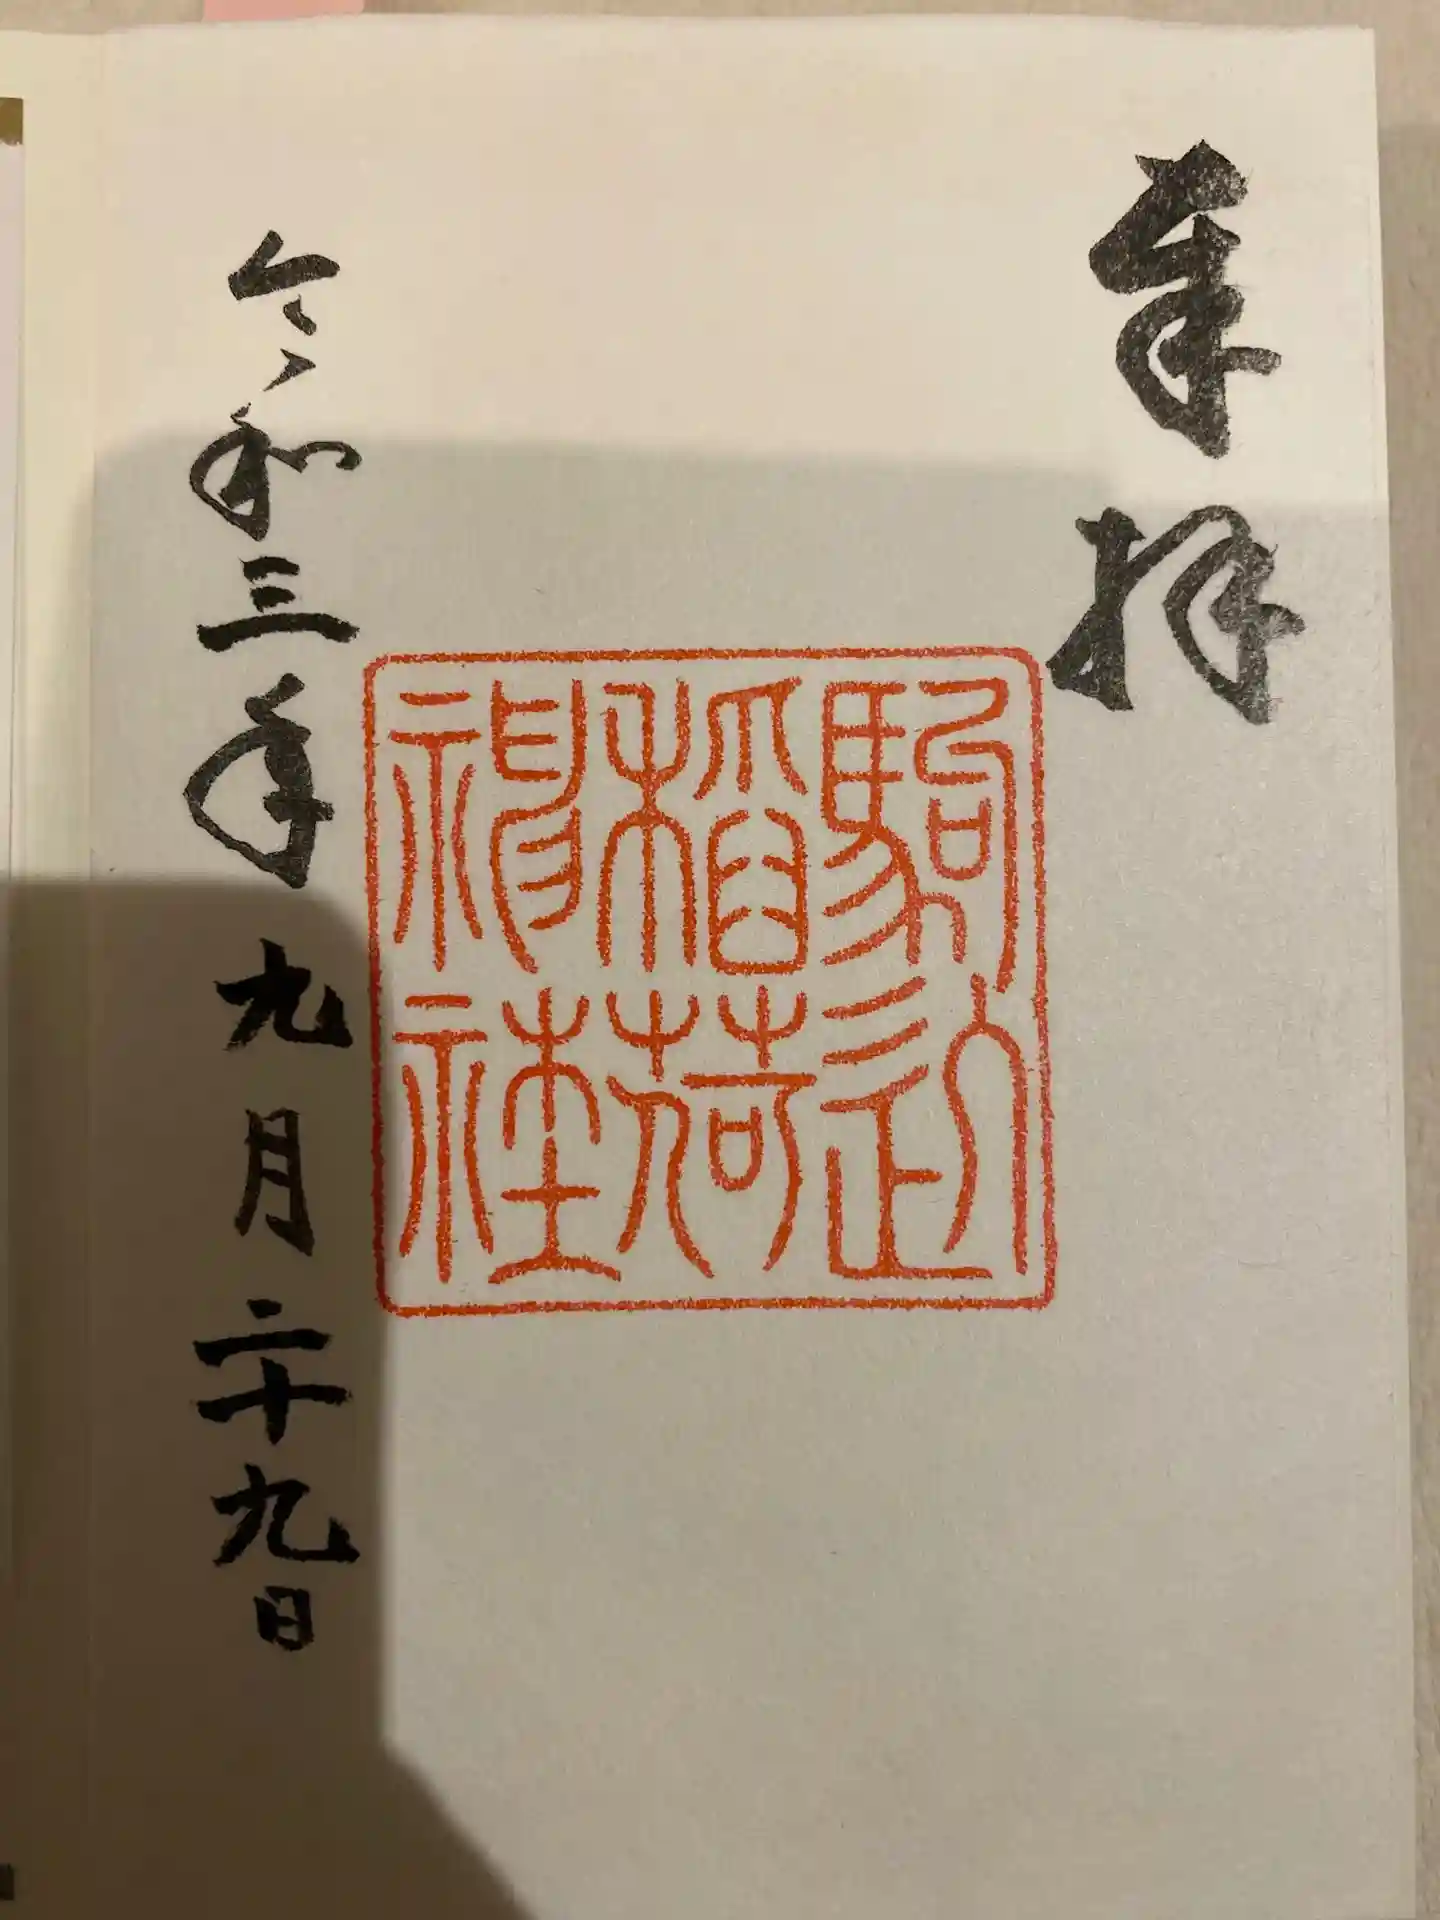 奉拝
駒込
稻荷
神社
令和三年九月二十九日